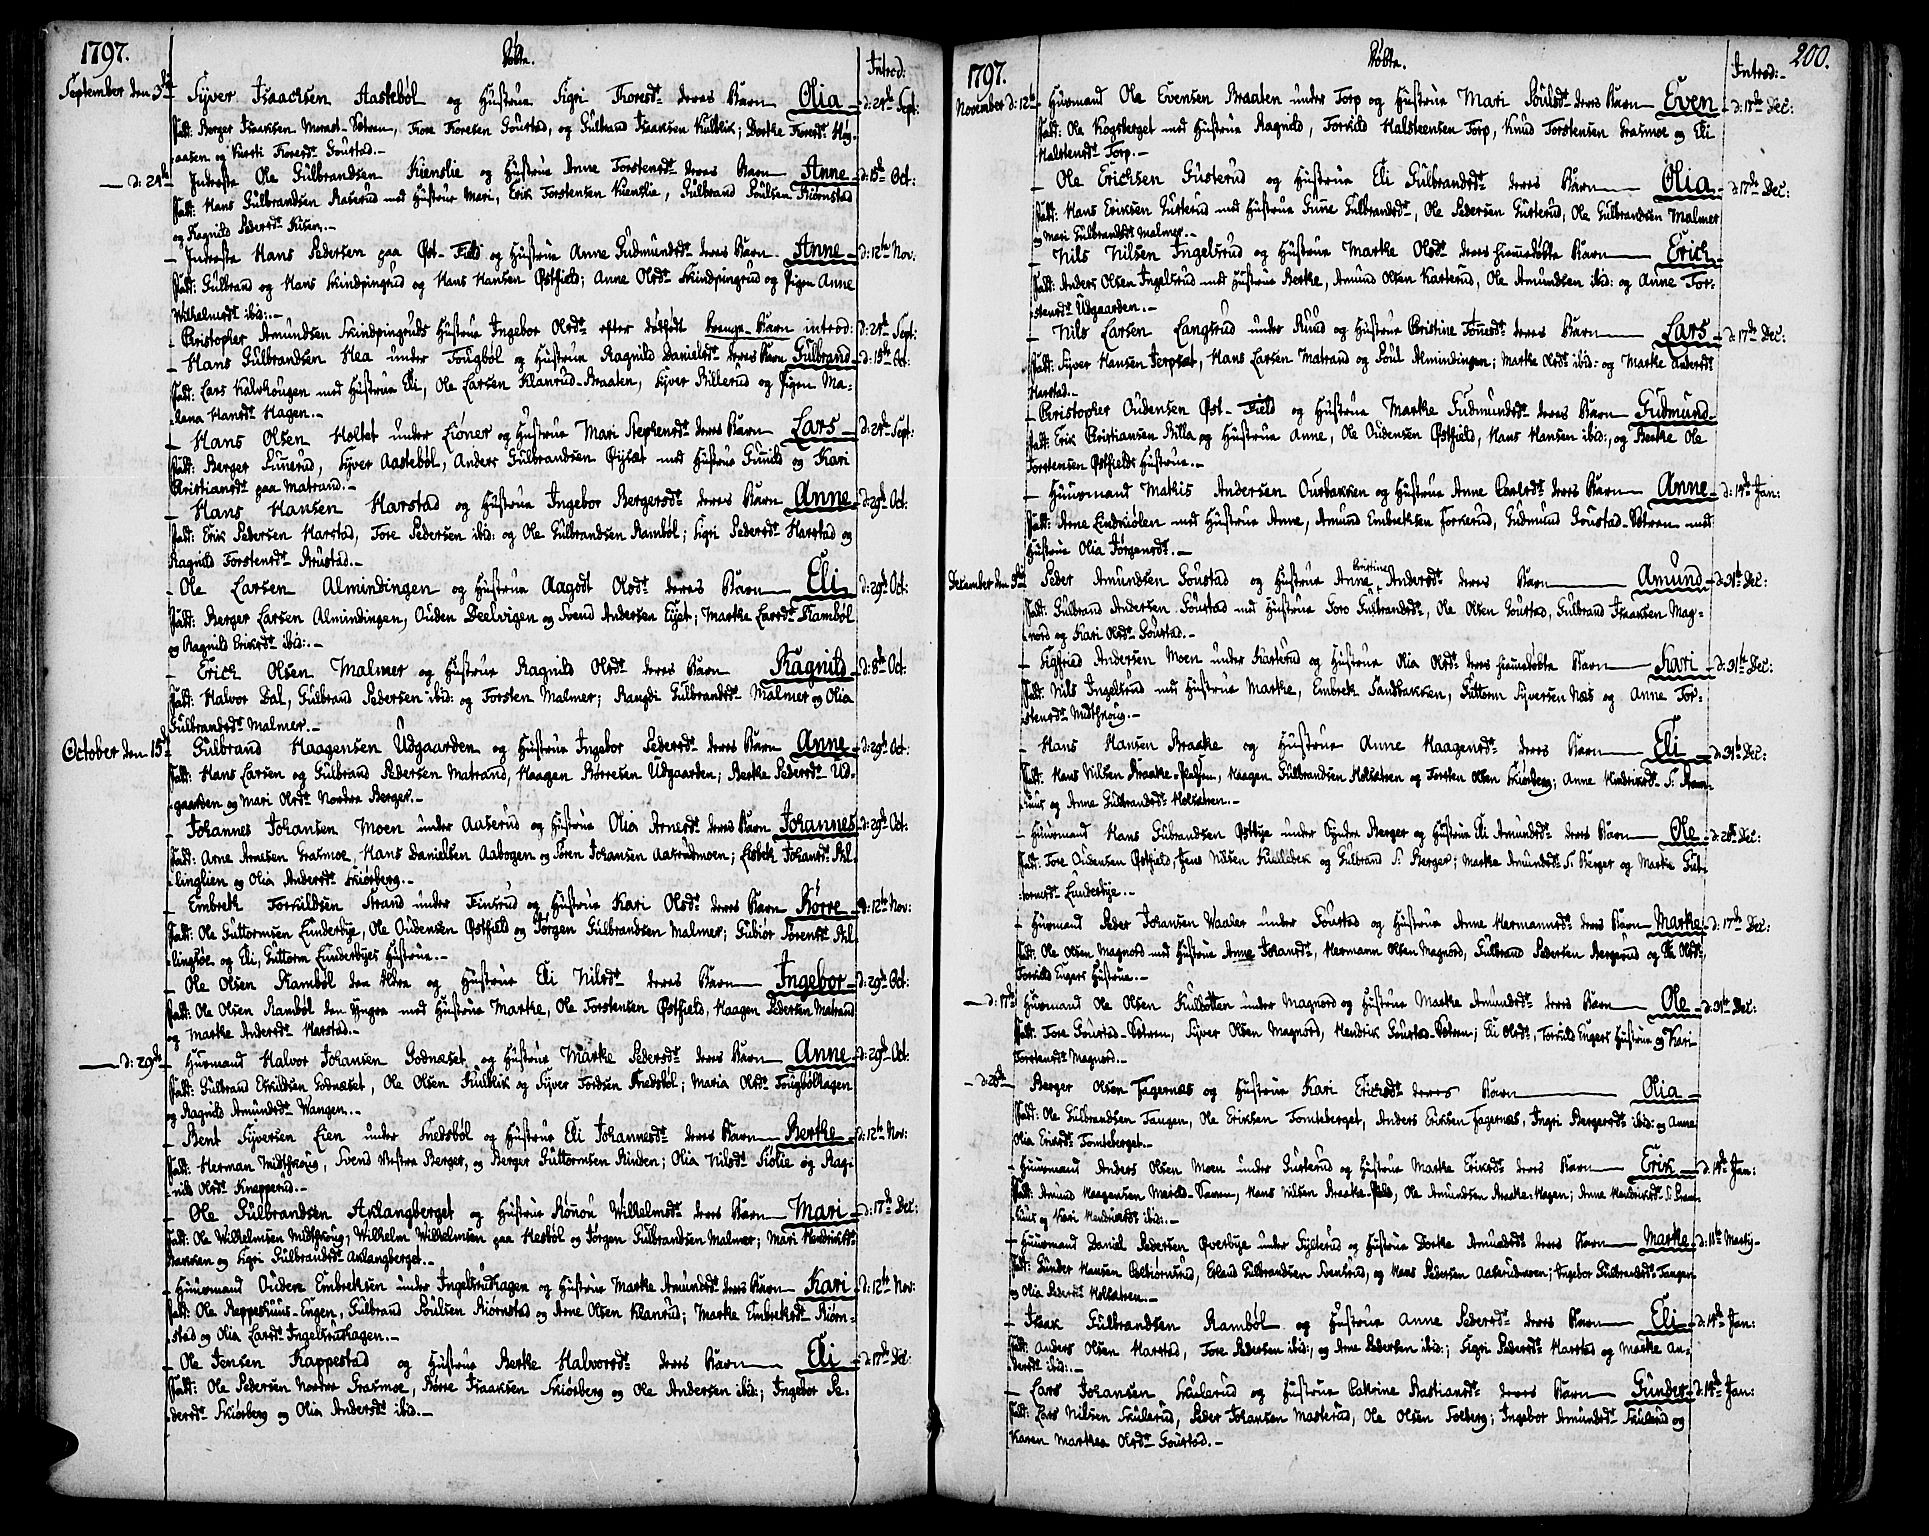 1797.
Døbte.
Introd:
September den 3die – Syver Isaachsen Aastebøl og Hustrue Sigri Toresdt. deres Barn Olia – d: 24de Sept:
Fadd: Berger Isaaksen Morast-Sætren, Tore Toresen Soustad, og Gulbrand Isaaksen Kulblik; Dorthe Toresdt. Høg-
aasen og Kirsti Toresdt. Soustad. –
– d: 24de – Indrøste Ole Gulbrandsen Kienslie og Hustrue Anne Torstensdt. deres Barn Anne – d: 15de Oct:
Fadd: Hans Gulbrandsen Raserud med Hustrue Mari, Erik Torstensen Kienslie, Gulbrand Poulsen Biørnstad
og Ragnild Pedersdt. Kisen. –
– Indrøste Hans Pedersen paa Øst-Field og Hustrue Anne Gudmundsdt. deres Barn – Anne – d: 12te Nov:
Fadd: Gulbrand og Hans Skindpingrud og Hans Hansen Østfield; Anne Olsdt. Skindpingrud og Pigen Anne
Wilhelmsdt. ibid: –
– Christopher Amundsen Skindpingruds Hustrue Ingebor Olsdt. efter dødfødt Drenge-Barn introd: d: 24de Sept:
– Hans Gulbrandsen Hea under Tougbøl og Hustrue Ragnild Danielsdt. deres Barn Gulbrand – d: 15de Oct:
Fadd: Lars Kalvhougen med Hustrue Eli, Ole Larsen Klanrud-Braaten, Syver Billerud og Pigen Ma-
lena Hansdt. Hagen. –
– Hans Olsen Holtet under Lioner og Hustrue Mari Stephensdt. deres Barn Lars – d: 24de Sept:
Fadd: Berger Linnerud, Syver Aastebøl, Anders Gulbrandsen Øisæt med Hustrue Gunild og Kari
Christiansdt. paa Matrand. –
– Hans Hansen Harstad og Hustrue Ingebor Bergersdt. deres Barn Anne – d: 29de Oct:
Fadd: Erik Pedersen Harstad, Tore Pedersen ibid: og Ole Gulbrandsen Rambøl; Sigri Pedersdt. Harstad og
Ragnild Torstensdt. Brustad. –
– Ole Larsen Almindingen og Hustrue Aagodt Olsdt. deres Barn Eli – d: 29de Oct:
Fadd: Berger Larsen Almindingen, Ouden Deelvigen og Svend Andersen Eyet; Marthe Larsdt. Rambøl
og Ragnild Eriksdt. ibid: –
– Erich Olsen Malmer og Hustrue Ragnild Olsdt. deres Barn Ragnild – d: 8de Oct:
Fadd: Halvor Dal, Gulbrand Pedersen ibid: og Torsten Malmer; Rangdi Gulbrandsdt. Malmer og Olia
Gulbrandsdt. Malmer. –
October den 15de – Gulbrand Haagensen Udgaarden og Hustrue Ingebor Pedersdt. deres Barn Anne – d: 29de Oct:
Fadd: Hans Larsen og Gulbrand Pedersen Matrand, Haagen Børresen Udgaarden; Berthe Pedersdt. Ud-
gaarden og Mari Olsdt. Nordre Berger. –
– Johannes Johansen Moen under Aaserud og Hustrue Olia Arnesdt. deres Barn Johannes – d: 29de Oct:
Fadd: Arne Arnesen Grasmoe, Hans Danielsen Aabogen og Søren Johansen Aaserudmoen; Lisbeth Johansdt. Bil-
linglien og Olia Andersdt. Skiørberg. –
– Embret Torkildsen Strand under Finsrud og Hustrue Kari Olsdt. deres Barn Børre – d: 12te Nov:
Fadd: Ole Guttormsen Lunderbye, Ole Oudensen Østfield og Jørgen Gulbrandsen Malmer; Gubiør Sørensdt. Bil-
lingtøe og Eli, Guttorm Lunderbyes Hustrue. –
– Ole Olsen Rambøl den Eldre og Hustrue Eli Nilsdt. deres Barn Ingebor – d: 29de Oct:
Fadd: Ole Olsen Rambøl den Yngre med Hustrue Marthe, Ole Torstensen Østfield, Haagen Pedersen Matrand
og Marthe Andersdt. Harstad. –
– d: 29de – Huusmand Halvor Johansen Godnæset og Hustrue Marthe Pedersdt. deres Barn Anne – d: 29de Oct:
Fadd: Gulbrand Eskildsen Godnæset, Ole Olsen Kulblik og Syver Tordsen Snedsbøl; Maria Olsdt. Tougbølhagen
og Ragnild Amundsdt. Wangen. –
– Bent Syversen Lien under Snedsbøl og Hustrue Eli Johannesdt. deres Barn Berthe – d: 12te Nov:
Fadd: Herman Midtskoug, Svend Vestre Berger, og Berger Guttormsen Rinden; Olia Nilsdt. Siølie og Rag-
nild Olsdt. Knapperud. –
– Ole Gulbrandsen Aklangberget og Hustrue Rønou Wilhelmsdt. deres Barn Mari – d: 17de Dec:
Fadd: Ole Wilhelmsen Midtskoug, Wilhelm Wilhelmsen paa Hesbøl og Jørgen Gulbrandsen Malmer; Mari Hendriksdt.
Bakken og Sigri Gulbrandsdt. Aklangberget. –
– Huusmand Oudere Embretsen under Ingelsrudhagen og Hustrue Marthe Amundsdt. deres Barn Kari – d: 12te Nov:
Fadd: Ole Reppeshuus-Engen, Gulbrand Poulsen Biørnstad og Arne Olsen Klanrud; Marthe Embretsdt. Biørn-
stad og Olia Larsdt. Ingelsrudhagen. –
– Ole Jensen Rappestad og Hustrue Berthe Halvorsdt. deres Barn Eli – d: 17de Dec:
Fadd: Ole Pedersen Nordre Grasmoe, Børre Isaaksen Skiørberg og Ole Andersen ibid:; Ingebor Pe-
dersdt. Skiørberg og Olia Andersdt. ibid. –
200.
1797.
Døbte.
Introd: –
November d: 12te – Huusmand Ole Evensen Braaten under Torp og Hustrue Mari Poulsdt. deres Barn Even – d: 17de Dec:
Fadd: Ole Kogsberget med Hustrue Ragnild, Torkild Halsteensen Torp, Knud Torstensen Grasmoe og Eli
Halstensdt. Torp. –
– Ole Erichsen Gusterud og Hustrue Eli Gulbrandsdt. deres Barn Olia – d: 17de Dec:
Fadd: Hans Eriksen Gusterud med Hustrue Gunne Gulbrandsdt., Ole Pedersen Gusterud, Ole Gulbrandsen Malmer
og Mari Gulbrandsdt. Malmer. –
– Nils Nilsen Ingelsrud og Hustrue Marthe Olsdt. deres hiemedøbte Barn Erich –
Fadd: Anders Olsen Ingelsrud med Hustrue Berthe, Amund Olsen Karterud, Ole Amundsen ibid: og Anne Tor-
stensdt. Udgaarden. –
– Nils Larsen Langsrud under Ruud og Hustrue Christine Tønnesdt. deres Barn Lars – d: 17de Dec:
Fadd: Syver Hansen Jerpset, Hans Larsen Matrand og Poul Almindingen; Marthe Olsdt. ibid: og Marthe Andersdt.
Harstad. –
– Christopher Oudensen Øst-Field og Hustrue Marthe Gudmundsdt. deres Barn Gudmund –
Fadd: Erik Christiansen Billa og Hustrue Anne, Ole Oudensen Østfield, Hans Hansen ibid:, og Berthe Ole
Torstensen Østfields Hustrue. –
– Huusmand Mathis Andersen Ousbakken og Hustrue Anne Carlsdt. deres Barn Anne – d: 14de Jan:
Fadd: Arne Lindkiølen med Hustrue Anne, Amund Embretsen Torkerud, Gudmund Soustad-Sætren med
Hustrue Olia Jørgensdt. –
December den 3die – Peder Amundsen Soustad og Hustrue Anne Cristine Andersdt. deres Barn Amund – d: 31te Dec:
Fadd: Gulbrand Andersen Soustad med Hustrue Goro Gulbrandsdt., Ole Olsen Soustad, Gulbrand Isaaksen Mag-
nord og Kari Olsdt. Soustad. –
– Sigfried Andersen Moen under Karterud og Hustrue Olia Olsdt. deres hiemedøbte Barn Kari – d: 31te Dec:
Fadd: Nils Ingelsrud med Hustrue Marthe, Embret Sandbakken, Guttorm Syversen Næs og Anne Tor-
stensdt. Midtskoug. –
– Hans Hansen Braate og Hustrue Anne Haagensdt. deres Barn Eli – d: 31te Dec:
Fadd: Hans Nilsen Braate-Pladsen, Haagen Gulbrandsen Holsætren og Torsten Olsen Skiørberg; Anne Hendriksdt. S: Bram-
huus og Anne Gulbrandsdt. Holsætren. –
– Huusmand Hans Gulbrandsen Østbye under Syndre Berger og Hustrue Eli Amundsdt. deres Barn Ole – d: 26de Dec:
Fadd: Tore Oudensen Østfield, Jens Nilsen Kullibek og Gulbrand S: Berger; Marthe Amundsdt. S: Berger og Marthe Gut-
tormsdt. Lunderbye. –
– Huusmand Peder Johansen Waaler under Soustad og Hustrue Anne Hermannsdt. deres Barn Marthe – d: 17de Dec:
Fadd: Ole Olsen Magnord med Hustrue Anne Johansdt., Hermann Olsen Magnord, Gulbrand Pedersen Bergerud og Eli Olsdt.,
Torkild Engers Hustrue. –
– d: 17de – Huusmand Ole Olsen Kulbotten under Magnord og Hustrue Marthe Amundsdt. deres Barn Ole – d: 31te Dec:
Fadd: Tore Soustad-Sætren, Syver Olsen Magnord, Hendrik Soustad-Sætren; Eli Olsdt., Torkild Engers Hustrue og Kari
Torstensdt. Magnord. –
– d: 26de – Berger Olsen Fagernæs og Hustrue Kari Erichsdt. deres Barn Olia –
Fadd: Ole Gulbrandsen Tangen, Ole Eriksen Tomteberget, Anders Eriksen Fagernæs, Ingri Bergersdt. ibid: og Anne
Olia Eriksdt. Tomteberget. –
– Huusmand Anders Olsen Moen under Gusterud og Hustrue Marthe Eriksdt. deres Barn Erik – d: 14de Jan:
Fadd: Amund Haagensen Morast-Sætren, Hans Nilsen Braate-Plads, Ole Amundsen Braate-Hagen; Anne Hendriksdt. S: Bram-
huus og Kari Hendriksdt. ibid: –
– Huusmand Daniel Pedersen Overbye under Sylterud og Hustrue Dorthe Amundsdt. deres Barn Marthe – d: 11te Martij –
Fadd: Gunder Hansen Æsbiørnsrud, Erland Gulbrandsen Svensrud, og Hans Pedersen Aaserudmoen; Ingebor Gulbrandsdt. Tangen
og Olia Pedersdt. Holsætren. –
– Isaak Gulbrandsen Rambøl og Hustrue Anne Pedersdt. deres Barn Eli – d: 14de Jan:
Fadd: Anders Olsen Harstad, Tore Pedersen ibid:, og Arne Pedersen ibid:; Sigri Pedersdt. Harstad og Marthe An-
dersdt. ibid: –
– Lars Johansen Skulerud og Hustrue Catrine Bastiansdt. deres Barn Gunder – d: 14de Jan:
Fadd: Lars Nilsen Skulerud, Peder Johansen Masterud, Ole Olsen Solberg; Ingebor Amundsdt. Skulerud og
Karen Marthea Olsdt. Soustad. –